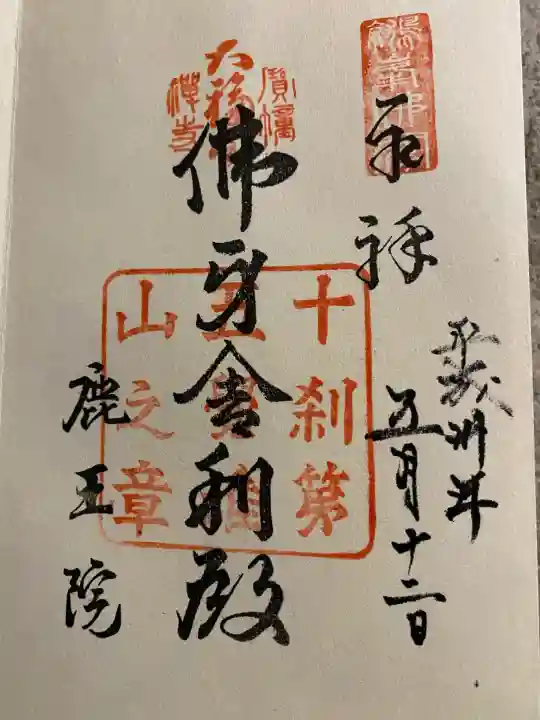 奉拝
平成卅年
五月十二日
佛牙舎利殿
鹿王院
寳幢
禪寺
十刹第
五
山之章